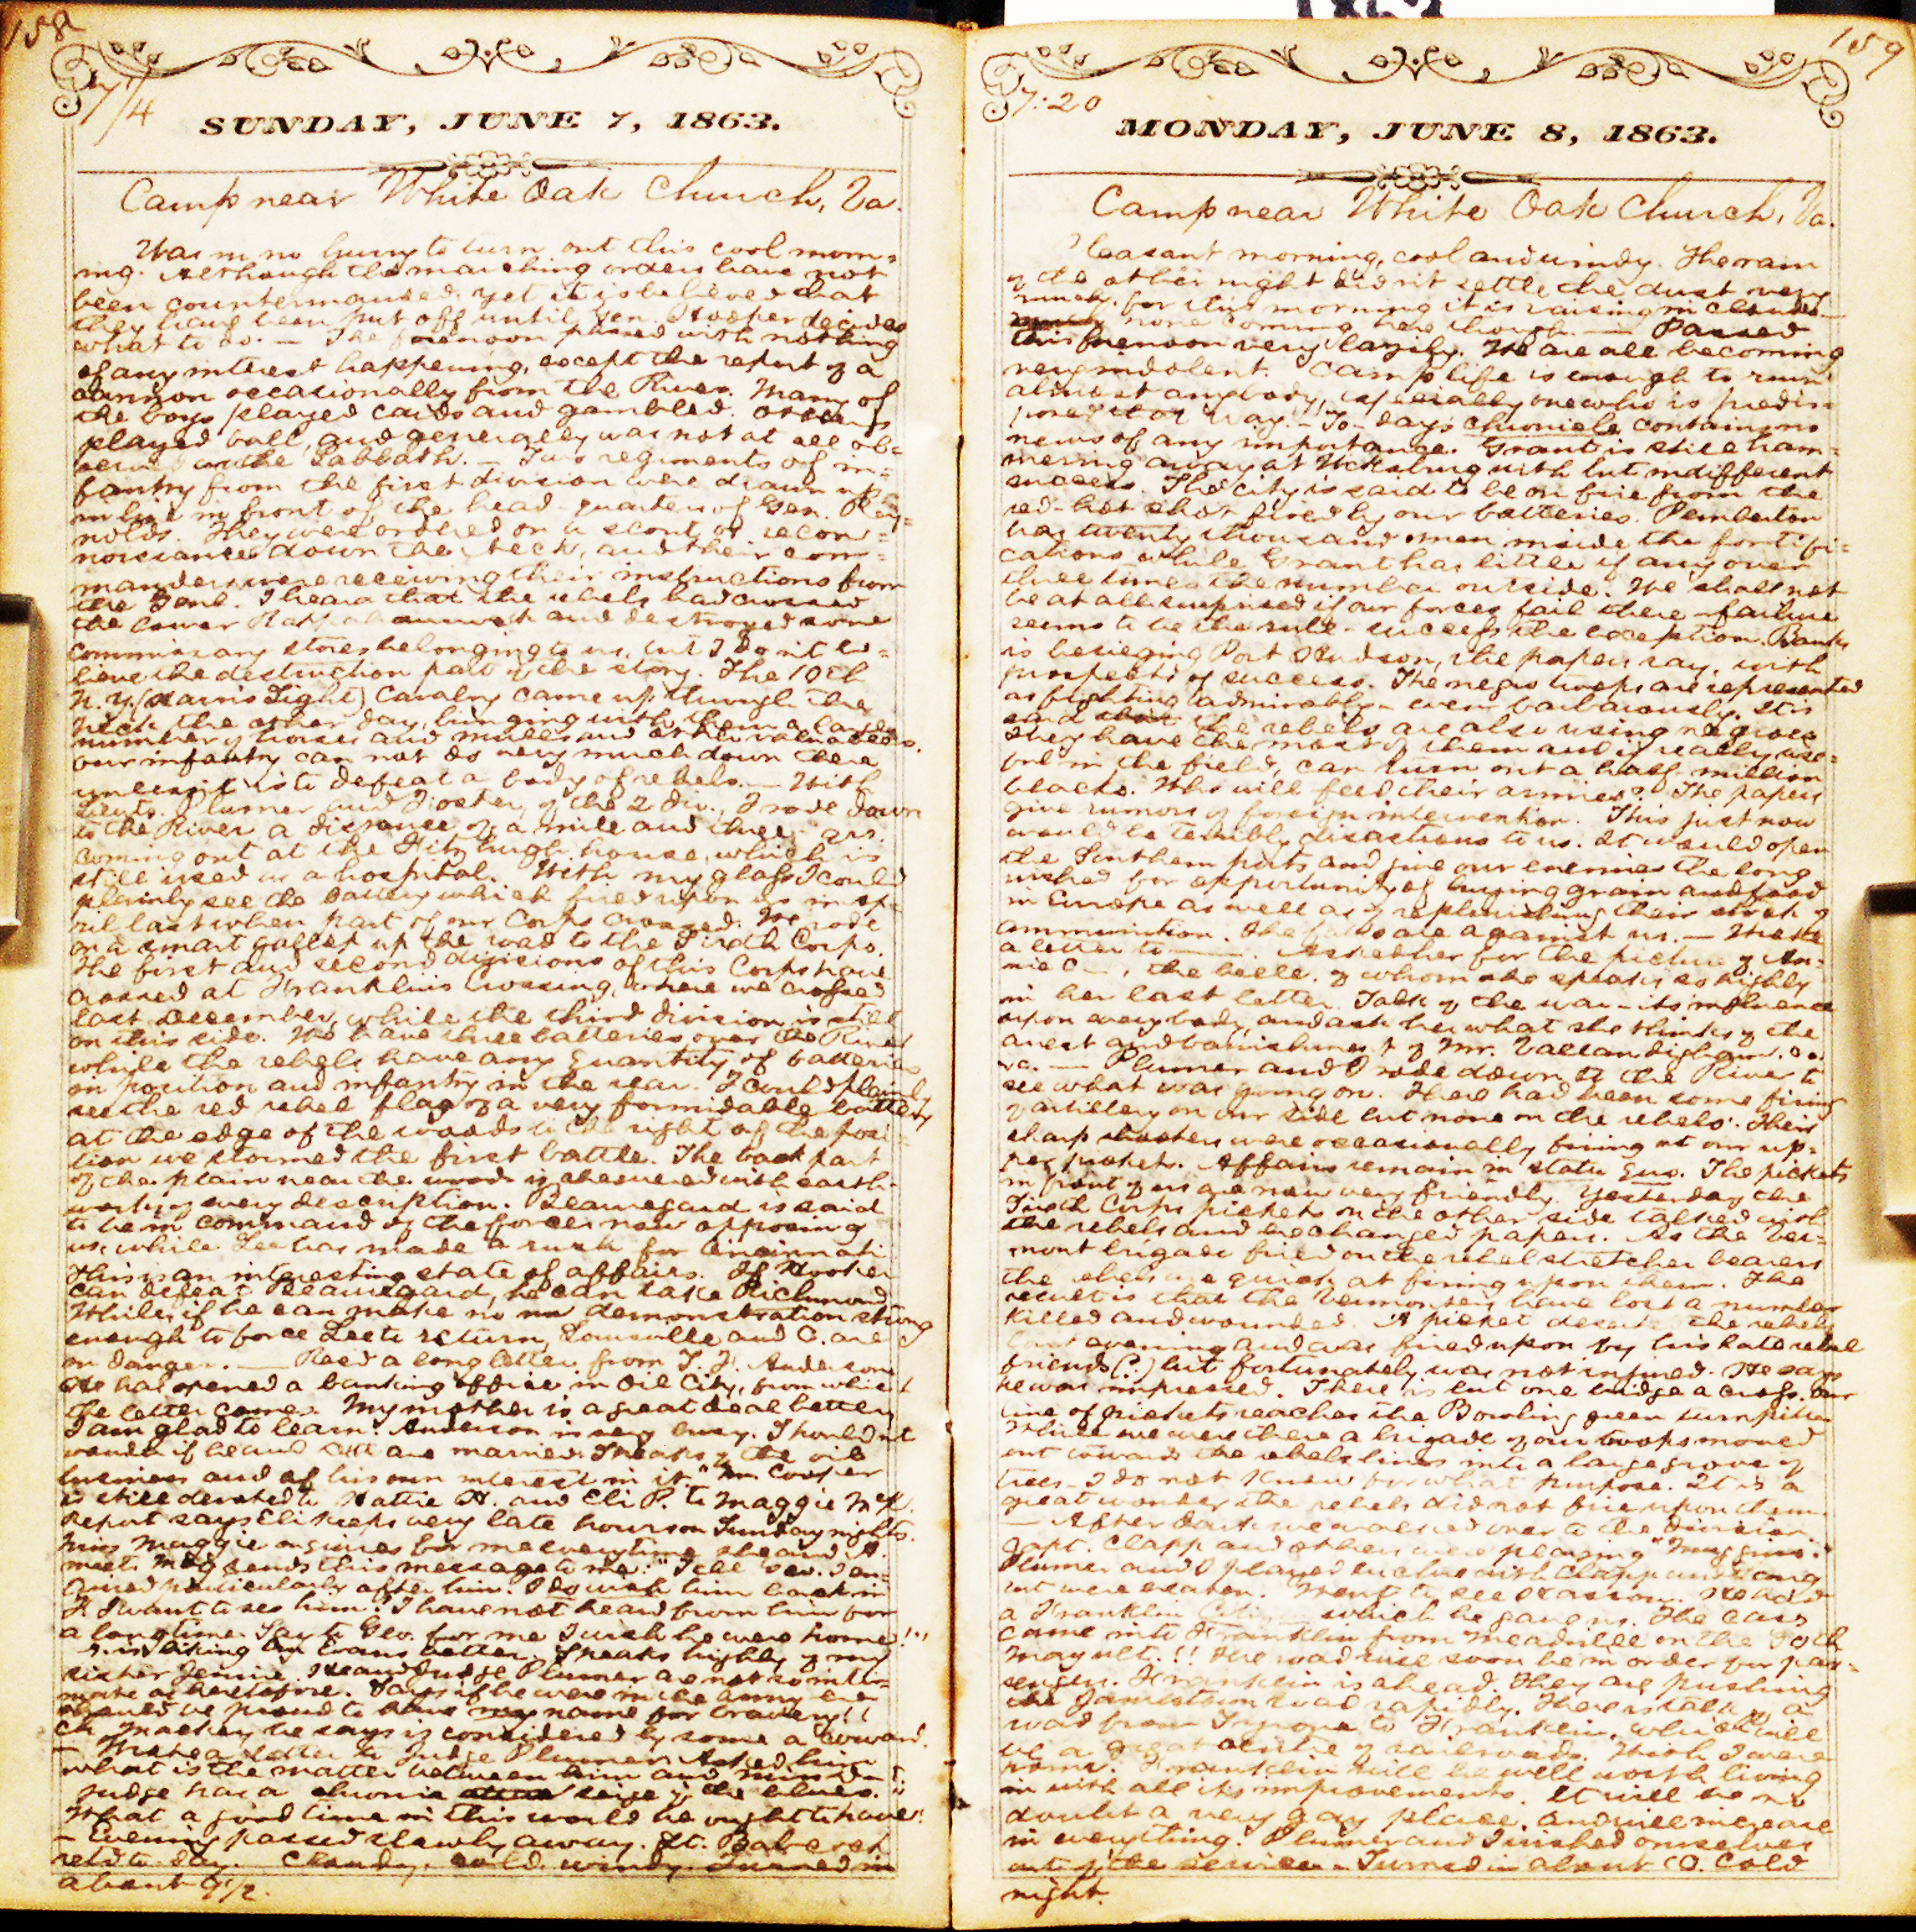 158
7/4
SUNDAY, JUNE 7, 1863.
Camp near White Oak Church, Va.
Was in no hurry to turn out this cool morn-
ing. Although the marching orders have not
been countermanded, yet it is believed that
they have been put off until Gen. Hooker decides
what to do. — The forenoon passed with nothing
of any interest happening, except the report of a
cannon occasionally from the River. Many of
the boys played cards and gambled. Others
played ball, and generally was not at all ob-
served as the Sabbath. — Two regiments of in-
fantry from the first division were drawn up
in line in front of the head-quarters of Gen. Rey-
nolds. They were ordered on a scout or recon-
noissance down the Neck, and their com-
manders were receiving their instructions from
the Genl. I heard that the rebels had crossed
the lower Rappahannock and destroyed some
commissary stores belonging to us, but I don't be-
lieve the destruction part of the story. The 10th
N.Y. (Harris Light) Cavalry came up through the
Neck the other day, bringing with them a large
number of horses and mules and other valuables.
Our infantry can not do very much down there
unless it is to defeat a body of rebels. — With
Lieuts. Plumer and Foster, of the 2 Div., I rode down
to the River a distance of a mile and three qrs.
coming out at the Fitzhugh house, which is
still used as a hospital. With my glass I could
plainly see the battery which fired upon us in Ap-
ril last when part of our Corps crossed. We rode
on a smart gallop up the road to the Sixth Corps.
The first and second divisions of this Corps have
crossed at Franklin's Crossing, where we crossed
last December, while the third division is still
on this side. We have three batteries over the River
while the rebels have any quantity of batteries
in position and infantry in the rear. I could plainly
see the red rebel flag of a very formidable battery
at the edge of the woods to the right of the posi-
tion we stormed the first battle. The back part
of the plain near the woods is checkered with earth-
works of every description. Beauregard is said
to be in command of the forces now opposing
us, while Lee has made a rush for Cincinnati
This is an interesting state of affairs. If Hooker
can defeat Beauregard, he can take Richmond
While, if he can make no demonstration strong
enough to force Lee to return, Louisville and C. are
in danger. — Recd a long letter from T. H. Anderson
He has opened a banking office in Oil City, from which
the letter comes. My mother is a great deal better
I am glad to learn. Anderson is very busy. Shouldn't
wonder if he and are married. Speaks of the oil
business and of his own interest in it. "Mr. Cooper
is still devoted to Hattie H. and Eli P. to Maggie McK.
Report says Eli keeps very late hours on Sunday nights.
Miss Maggie inquires for me every time she and A.
meet. sends this message to me: "Tell Geo. I en-
quired particularly after him. I do wish him back in
F. I want to see him. I have not heard from him for
a long time. Say to Geo. for me I wish he were home!"
A. is liking Evans better. Speaks highly of my
sister Jennie. He and Judge Plumer are not so inti-
mate as heretofore. Says if he were in the army he
should be proud to have my name for bravery!!
Ch. Mackey he says is considered by some a coward!
— Wrote a letter to Judge Plumer. Asked him
what is the matter between him and
Judge has a chronic seige of the blues.
What a good time in this world he ought to have!
— Evening passed slowly away.
to-day. Cloudy, cold, windy. Turned in
about 9 1/2.
159
7:20
MONDAY, JUNE 8, 1863.
Camp near White Oak Church, Va.
Pleasant morning, cool and windy. The rain
of the other night didn't settle the dust very
much, for this morning it is raising in clouds —
none coming here though. — Passed
this forenoon very lazily. We are all becoming
very indolent. Camp life is enough to ruin
almost anybody, especially one who is predis-
posed that way. — To-days chronicle contains no
news of any importance. Grant is still ham-
mering away at Vicksburg with but indifferent
success. The city is said to be on fire from the
red-hot shot fired by our batteries. Pemberton
has twenty thousand men inside the fortifi-
cations while Grant has little if any over
three times the number outside. We shall not
be at all surprised if our forces fail there — failure
seems to be the rule — success the exception. Banks
is besieging Port Hudson, the papers say, with
prospects of success. The negro troops are represented
as fighting admirably — even barbarously. It is
said the rebels are also using negroes
They have the most of them and if really use-
ful in the field, can turn out a half million
blacks. Who will feed their armies? The papers
give rumors of foreign intervention. This just now
would be terribly disastrous to us. It would open
the Southern ports and give our enemies the long
wished for opportunity of buying grain and food
in Europe as well as of replenishing their stock of
ammunition. The are against us. — Wrote
a letter to —. Asked her for the picture of An-
nie C—, the belle of whom she speaks so highly
in her last letter. Talk of the war — its influence
upon everybody, and ask her what she thinks of the
arrest and banishment of Mr. Vallandigham. &c.
&c. — Plumer and I rode down to the River to
see what was going on. There had been some firing
of artillery on our side but none on the rebels'. Their
sharp shooters were occasionally firing at our up-
per pickets. Affairs remain in statu quo. The pickets
in front of us are now very friendly. Yesterday the
Sixth Corps pickets on the other side talked with
the rebels and exchanged papers. As the Ver-
mont brigade fired on the rebel stretcher bearers
the rebels are quick at firing upon them. The
result is that the Vermonters have lost a number
killed and wounded. A picket deserted the rebels
last evening and was fired upon by his late rebel
friends (?) but fortunately was not injured. He says
he was impressed. There is but one bridge across. Our
line of pickets reaches the Bowling green turnpike
While we were there a brigade of our troops moved
out toward the rebels lines into a large grove of
trees — I do not know for what purpose. It is a
great wonder the rebels did not fire upon them.
— After dark we walked over to the division.
Capt. Clapp and others were playing "Muggins."
Plumer and I played euchre with Clapp and
but were beaten. Went to see He had
a Franklin Citizen which he gave us. The cars
came into Franklin from Meadville on the 30th
May ult.!! The road will soon be in order for pas-
sengers. Franklin is ahead. They are pushing
the Jamestown road rapidly. There is talk of a
road from Tyrone to Franklin, which will
be a great centre of railroads. Wish I were
home. Franklin will be well worth living
in with all its improvements. It will be no
doubt a very gay place, and will increase
in everything. Plumer and I wished ourselves
out of the service. — Turned in about 10. Cold
night.